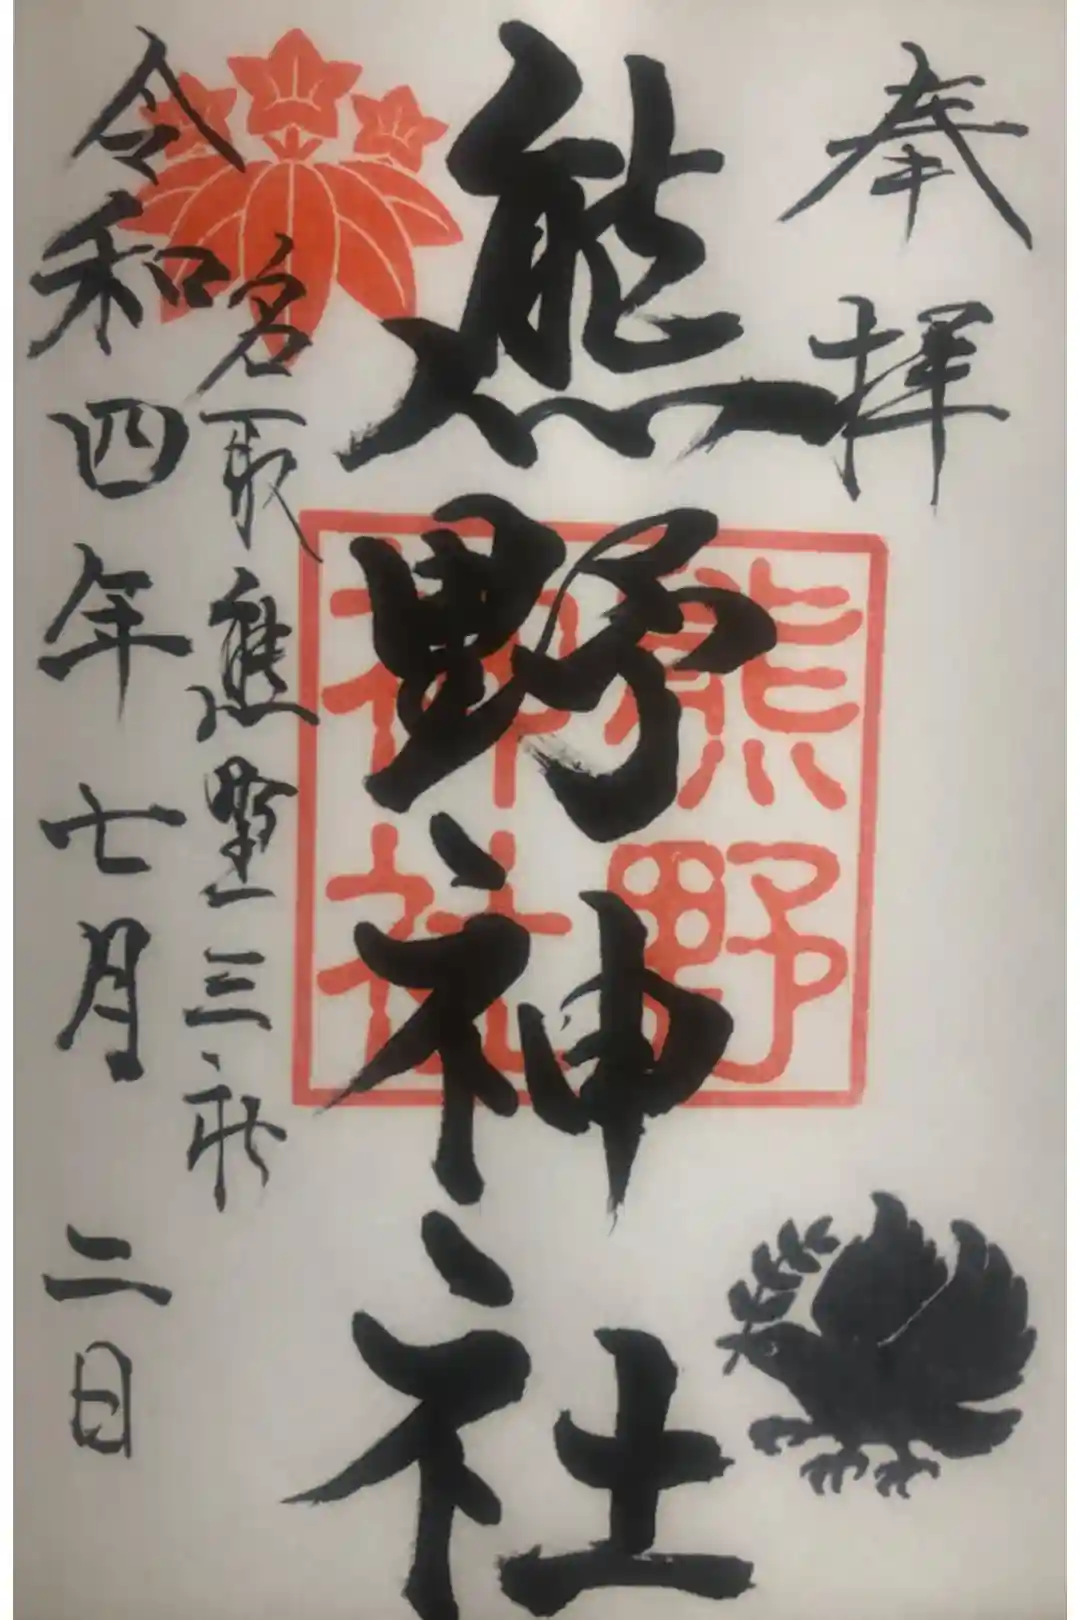 奉拝
熊野神社
熊野
神社
名取熊野三社
令和四年七月二日